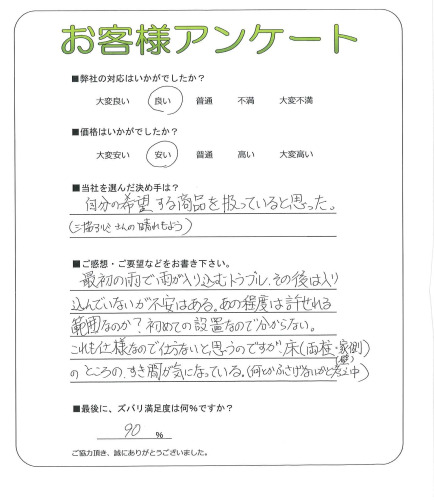 お客様アンケート
■弊社の対応はいかがでしたか?
大変良い 良い 普通 不満 大変不満
■価格はいかがでしたか?
大変安い 安い 普通 高い 大変高い
■当社を選んだ決め手は?
自分の希望する商品を扱っていると思った。
(三協アルミさんの晴れもよう)
■ご感想・ご要望などをお書き下さい。
最初の雨で雨が入り込むトラブル、その後は入り
込んでいないが不安はある。あの程度は許せれる
範囲なのか?初めての設置なので分からない。
これも仕様なので仕方ないと思うのですが、床(両柱・家側)
(壁)
のところの、すき間が気になっている。(何とかふさげないかと思い中)
■最後に、ズバリ満足度は何%ですか?
90 %
ご協力頂き、誠にありがとうございました。